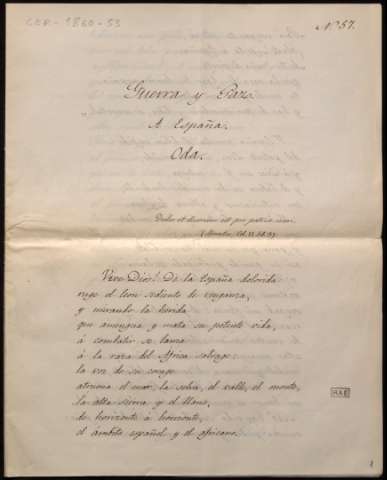 CER-1860-53
Nº 57.
Guerra y Paz.
A España.
Oda.
Dulce et decorum est pro patria mori
(Horatio, Od. II. Lib. 3º)
Vive Dios! De la España dolorida
ruge el leon sediento de venganza,
y mirando la herida
que amengua y mata su potente vida,
á combatir se lanza
á la raza del África salvaje
la voz de su corage
atruena el mar, la selva, el valle, el monte,
la alta sierra y el llano,
de horizonte á horizonte,
el ámbito español y el africano.
RAE
1